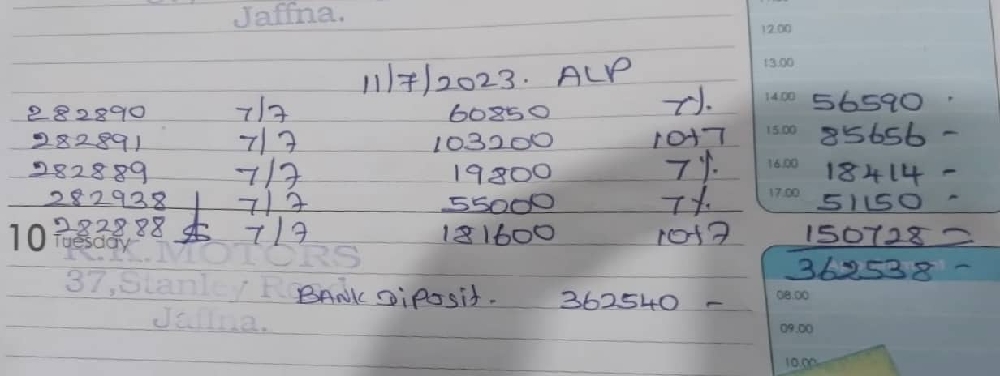 Jaffna.
12.00
13.00
11/7/2023. ALP
282890 7/7 60850 7%. 14.00 56590 -
282891 7/7 103200 10+7 15.00 85656 -
282889 7/7 19800 7%. 16.00 18414 -
282938 7/7 55000 7%. 17.00 51150 -
282888 7/7 181600 10+7 150728 =
10 Tuesday
R.K.MOTORS
362538 -
37,Stanley Road
BANK Diposit. 362540 -
08.00
Jaffna.
09.00
10.00